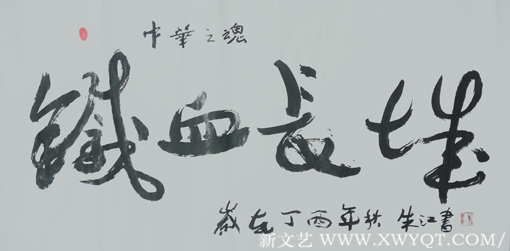 中華之魂
鐵血長城
歲在丁酉年秋 朱江書
新文艺 / WWW.XWYQT.COM/